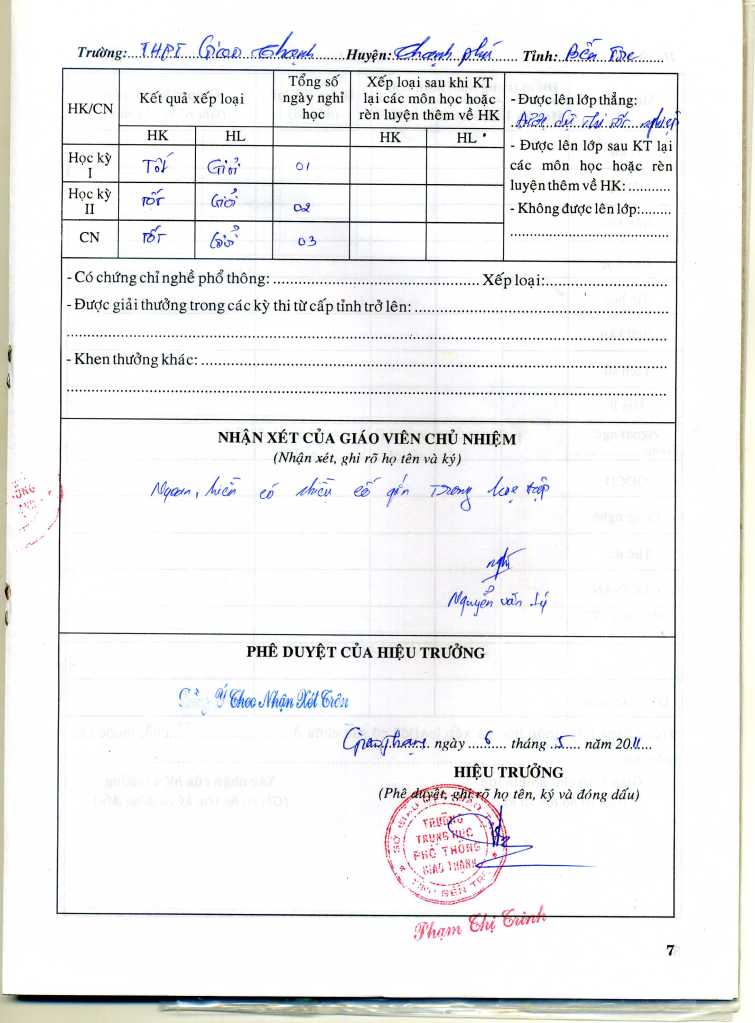 Trường: THPT Giao Thạnh Huyện: Thạnh Phú Tỉnh: Bến Tre
HK/CN
Kết quả xếp loại
HK HL
Tổng số
ngày nghỉ
học
Xếp loại sau khi KT
lại các môn học hoặc
rèn luyện thêm về HK
HK HL
- Được lên lớp thẳng:
thi nghiệp
- Được lên lớp sau KT lại
các môn học hoặc rèn
luyện thêm về HK: ...........
- Không được lên lớp:........
Học kỳ I Tốt Giỏi 01
Học kỳ II Tốt Giỏi 02
CN Tốt Giỏi 03
- Có chứng chỉ nghề phổ thông: .......... Xếp loại:..........
- Được giải thưởng trong các kỳ thi từ cấp tỉnh trở lên: ..........
- Khen thưởng khác: ..........
NHẬN XÉT CỦA GIÁO VIÊN CHỦ NHIỆM
(Nhận xét, ghi rõ họ tên và ký)
Ngoan, hiền có nhiều cố gắn trong học tập
Nguyễn Văn Lý
PHÊ DUYỆT CỦA HIỆU TRƯỞNG
Đồng Ý Theo Nhận Xét Trên
Giao Thạnh, ngày 6 tháng 5 năm 2011
HIỆU TRƯỞNG
(Phê duyệt, ghi rõ họ tên, ký và đóng dấu)
TRƯỜNG
TRUNG HỌC
PHỔ THÔNG
GIAO THẠNH
TỈNH BẾN TRE
Phạm Thị Trinh
7